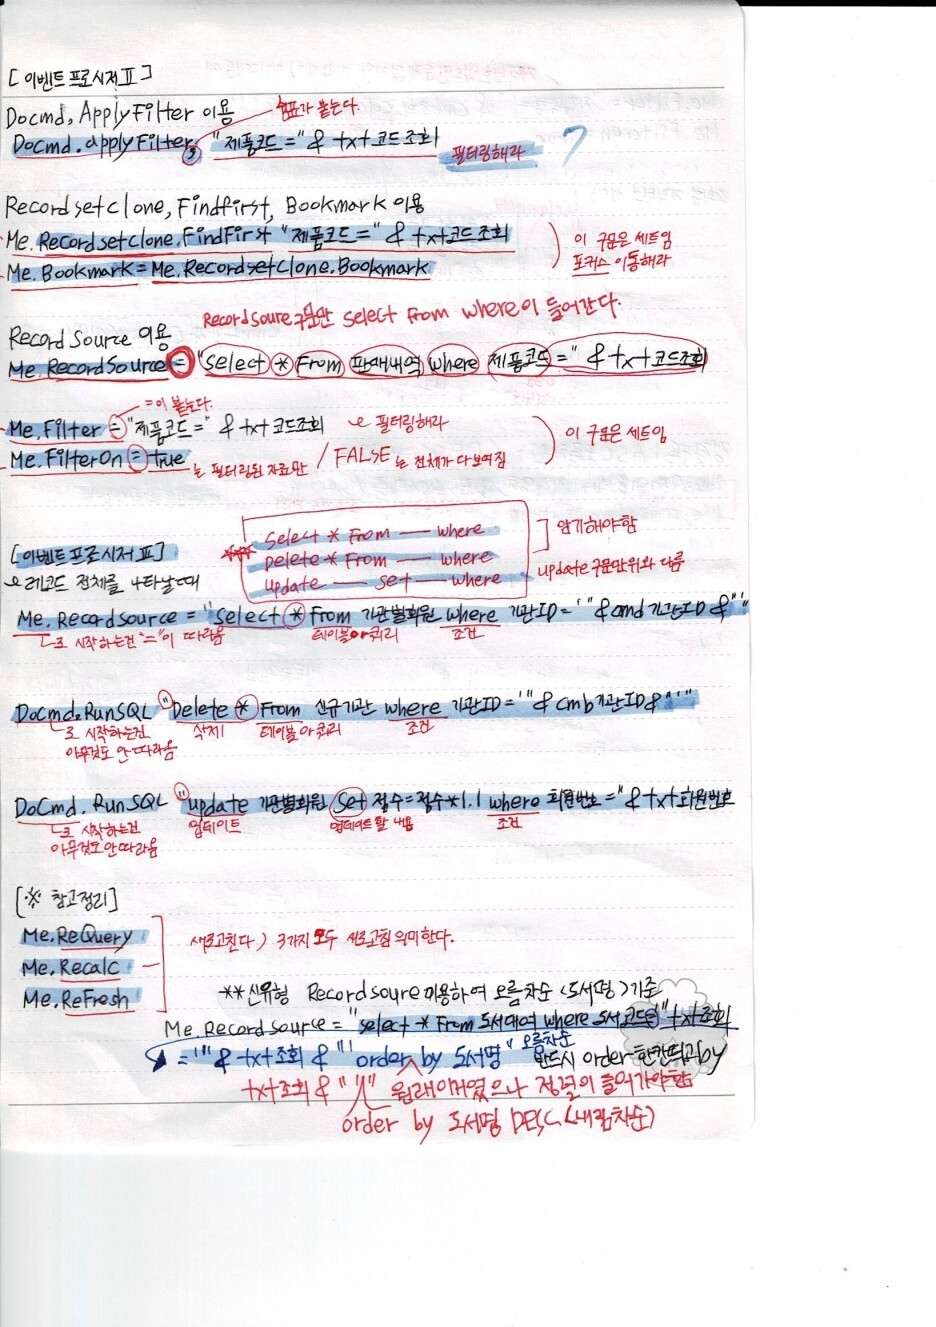 [이벤트프로시저Ⅱ]
Docmd, ApplyFilter 이용
쉼표가 붙는다.
Docmd.applyFilter, "제품코드=" & txt코드조회
필터링해라
Recordsetclone, Findfirst, Bookmark 이용
Me.Recordsetclone.FindFirst "제품코드=" & txt코드조회
Me.Bookmark=Me.Recordsetclone.Bookmark
이 구문은 세트임
포커스 이동해라
Record Soure 구문만 select From where이 들어간다.
Record Source 이용
Me.RecordSource = "select * From 판매내역 where 제품코드=" & txt코드조회
=이 붙는다.
Me.Filter = "제품코드=" & txt코드조회 필터링해라
Me.FilterOn = true 는 필터링된 자료만 / FALSE 는 전체가 다보여짐
이 구문은 세트임
select * From ── where
Delete * From ── where
update ── set ── where
암기해야함
update 구문만위와 다름
[이벤트프로시저Ⅲ]
레코드 전체를 나타낼때
Me.Recordsource = "select * From 기관별회원 where 기관ID='"&cmd기관ID&"'"
로 시작하는건 "="이 따라옴
테이블아쿼리
조건
DoCmd.RunSQL "Delete * From 신규기관 where 기관ID='"&cmb기관ID&"'"
로 시작하는건
아무것도 안따라옴
삭제
테이블아쿼리
조건
DoCmd.RunSQL "update 기관별회원 Set 점수=점수*1.1 where 회원번호="&txt회원번호
로 시작하는건
아무것도안따라옴
업데이트
업데이트할 내용
조건
[※ 참고정리]
Me.ReQuery
Me.Recalc
Me.ReFresh
새로고친다) 3가지 모두 새로고침 의미한다.
**신유형 Recordsoure 이용하여 오름차순 <도서명> 기준
Me.Recordsource="select * From 도서대여 where 도서코드 txt조회
='"& txt조회 &"' order by 도서명" 오름차순
반드시 order한칸띄고by
txt조회 & "'" 원래이거였으나 정렬이 들어가야함
order by 도서명 DESC <내림차순>